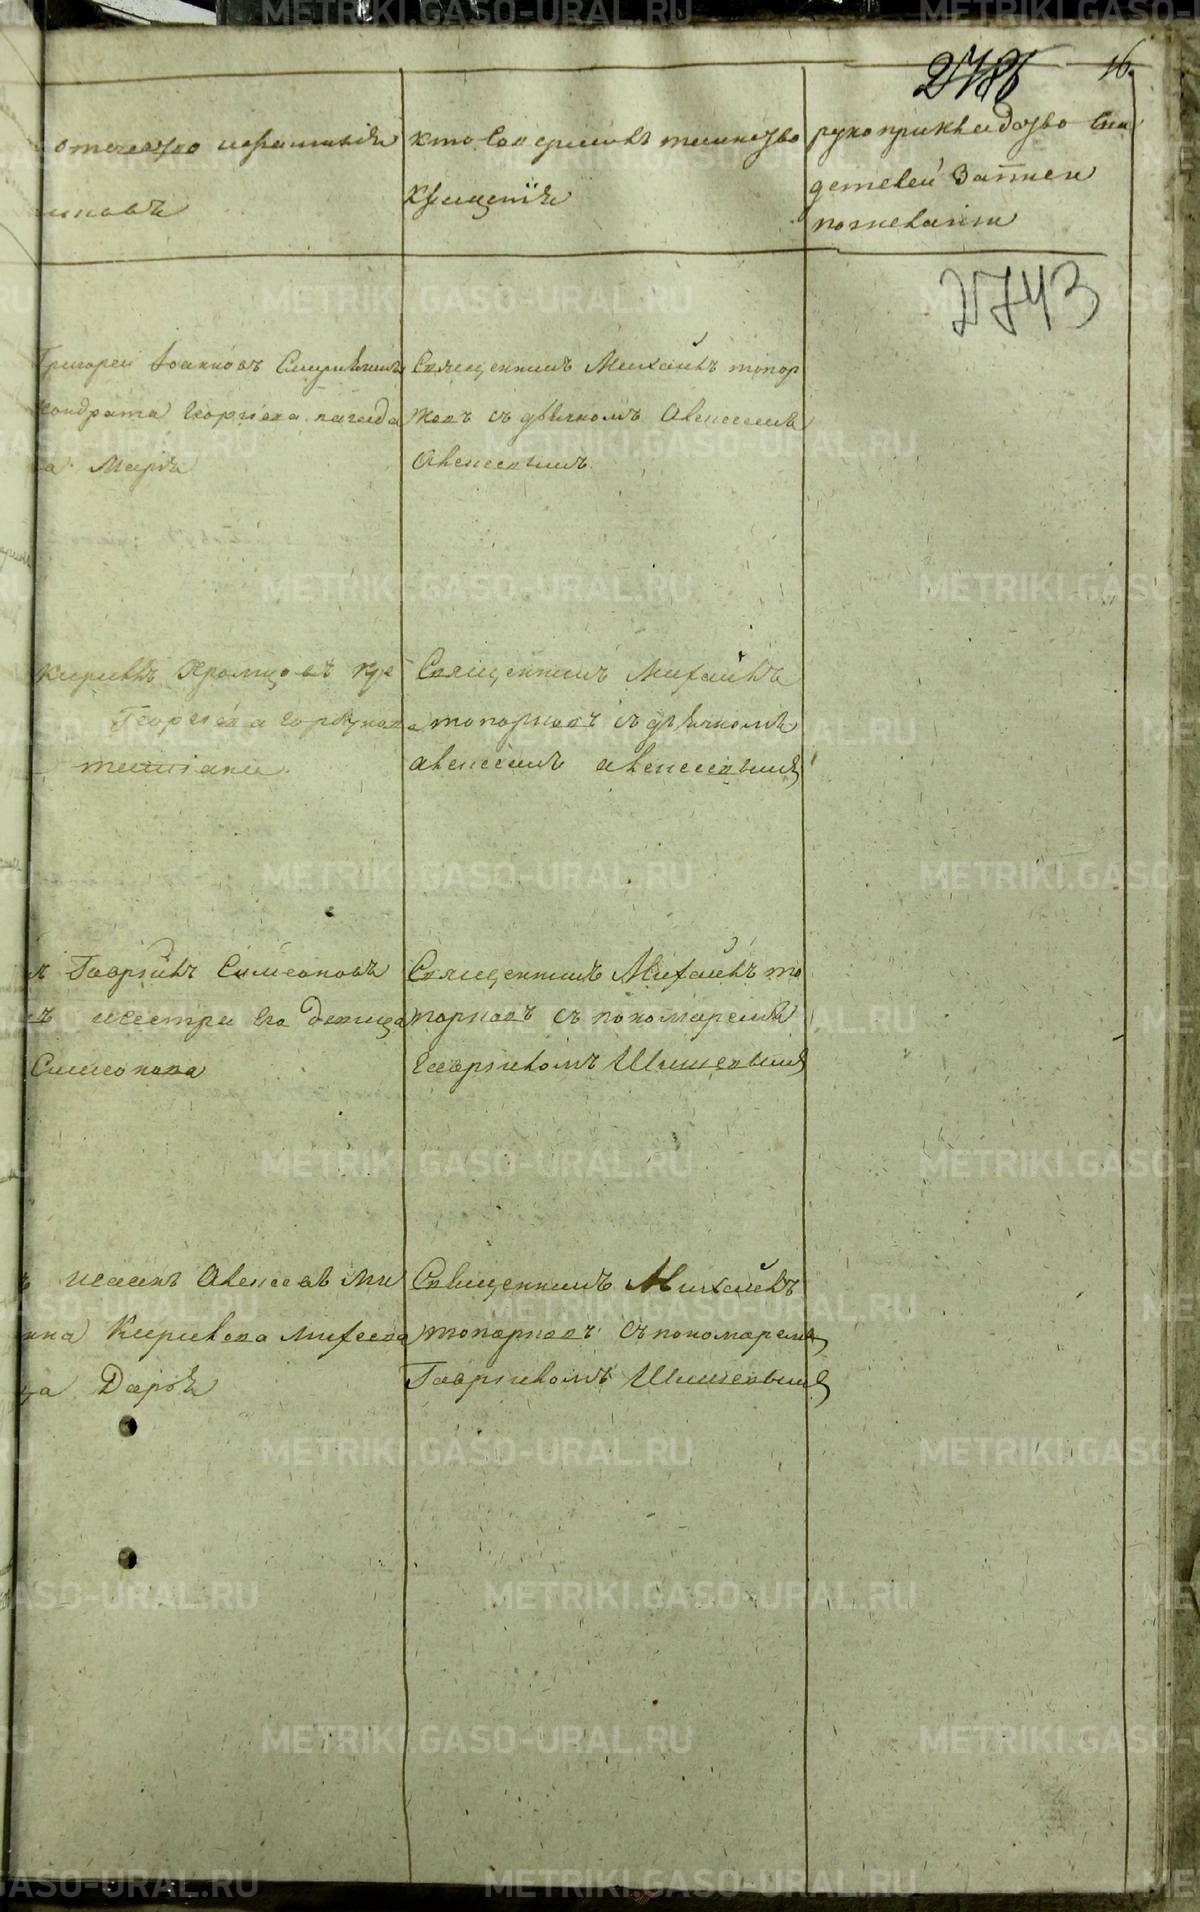 16
отечество и фамилия
кто совершилъ таинство
крещенїя
рукоприкладство сви
детелей записи
по желанию
2743
Григореи Iоанновъ
Кондрата Георгiева
Марѳа
Священникъ Михаилъ топор
ковъ съ дьячкомъ Алексеемъ
Алексеевымъ
Кирилъ Храмцовъ кре
Георгiева Горбунова
татiана
Священникъ Михаилъ
топорковъ съ дьячкомъ
алексеемъ алексеевымъ
Гаврiилъ Симеоновъ
исестра его девица
Симеонова
Священникъ Михаилъ то
порковъ съ пономаремъ
Гаврiиломъ Шишевымъ
исаакъ Алексеевъ Ми
Кирилова Михеева
ца Дарья
Священникъ Михаилъ
топорковъ съ пономаремъ
Гаврiиломъ Шишевымъ
METRIKI.GASO-URAL.RU